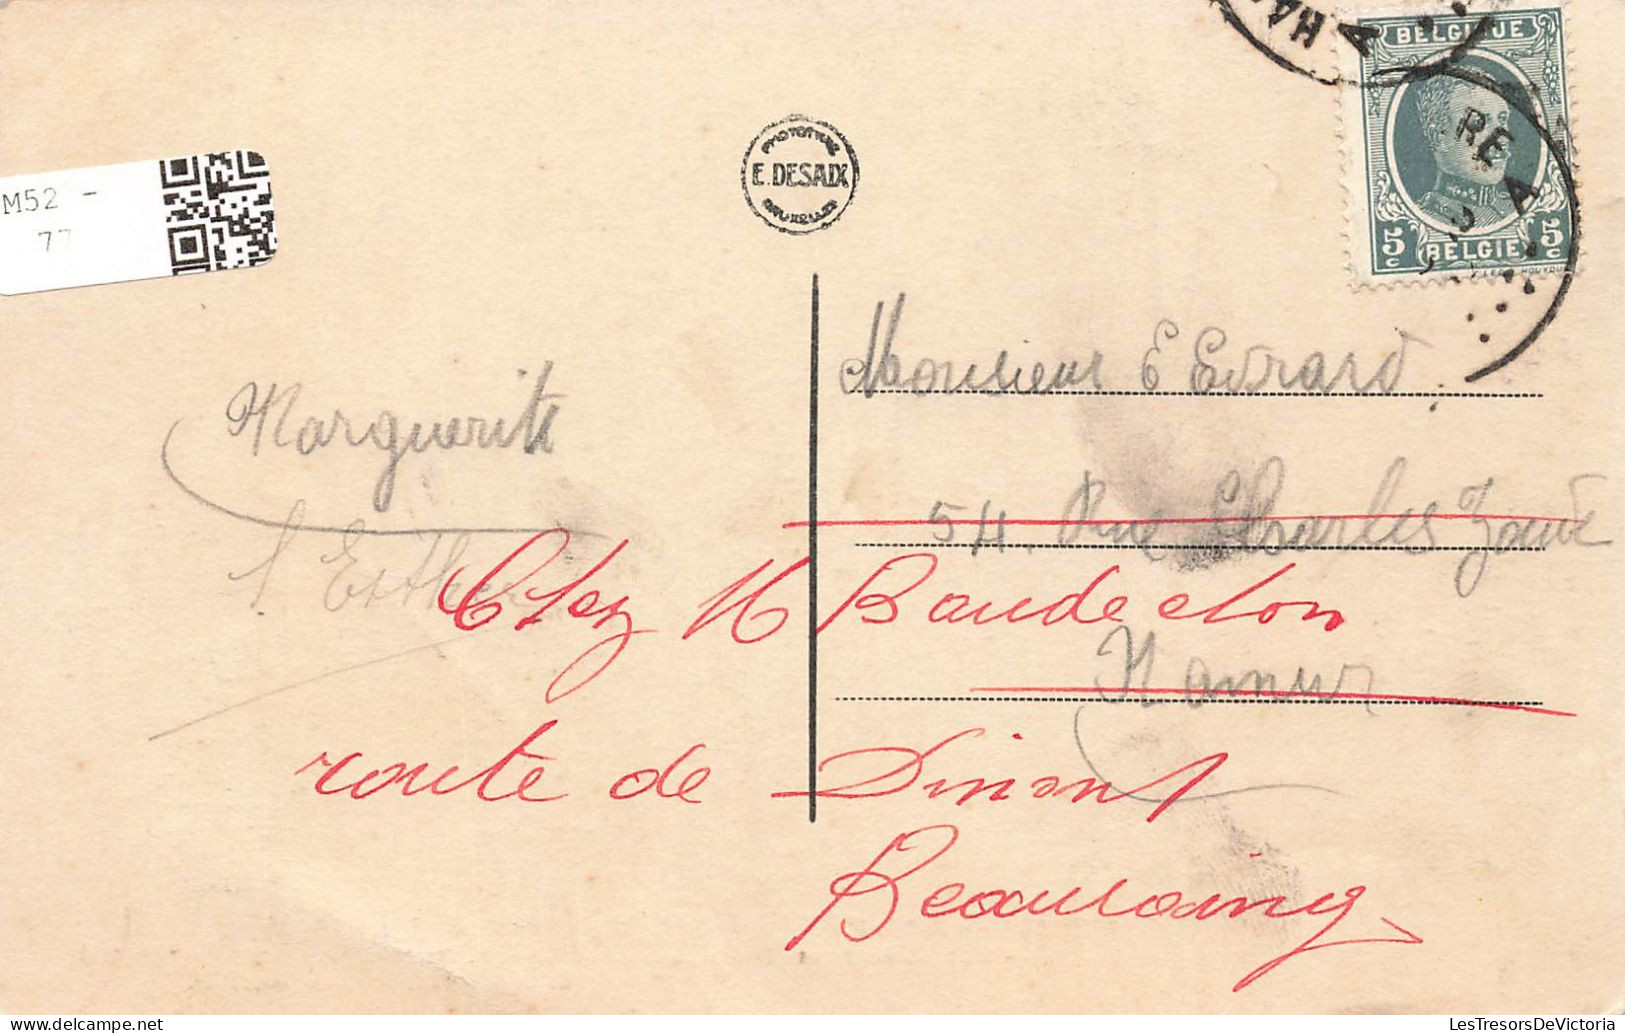 HA
BELGIQUE
RE
A
5c BELGIE 5c
PHOTOTYPIE
E. DESAIX
BRUXELLES
M52 -
77
Monsieur E Evrard
54. Rue Charles Zoude
Namur
Marguerite
Esther
Chez M Baudelon
route de Dinant
Beauraing
LesTresorsDeVictoria